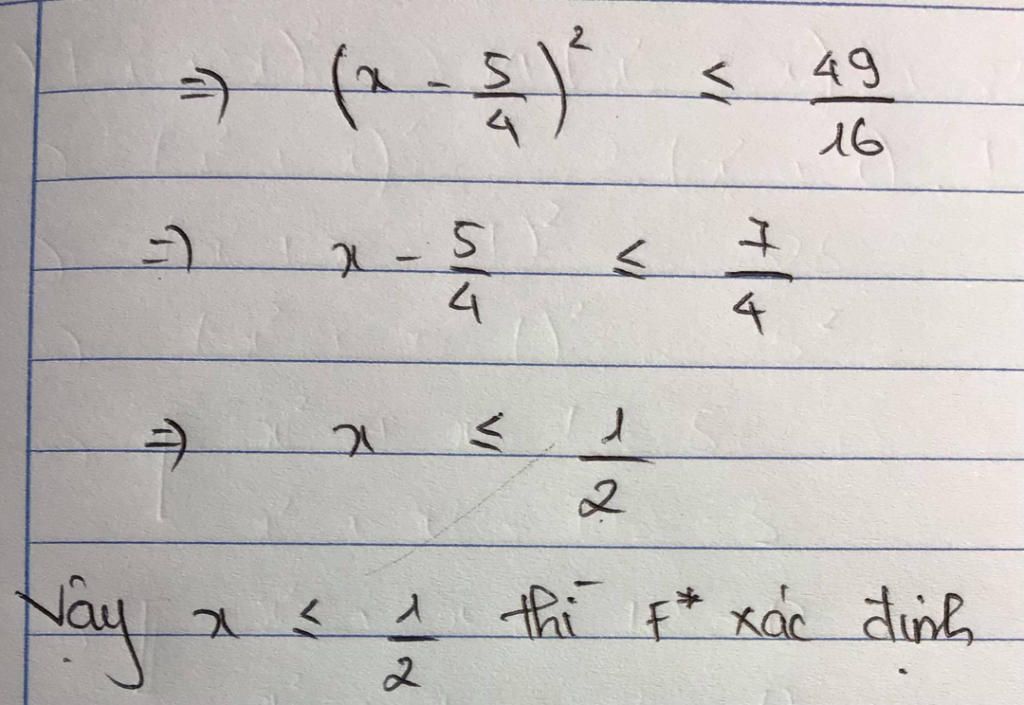 ⇒ (x - 5/4)² ≤ 49/16
⇒ x - 5/4 ≤ 7/4
⇒ x ≤ 1/2
Vậy x ≤ 1/2 thì F* xác định